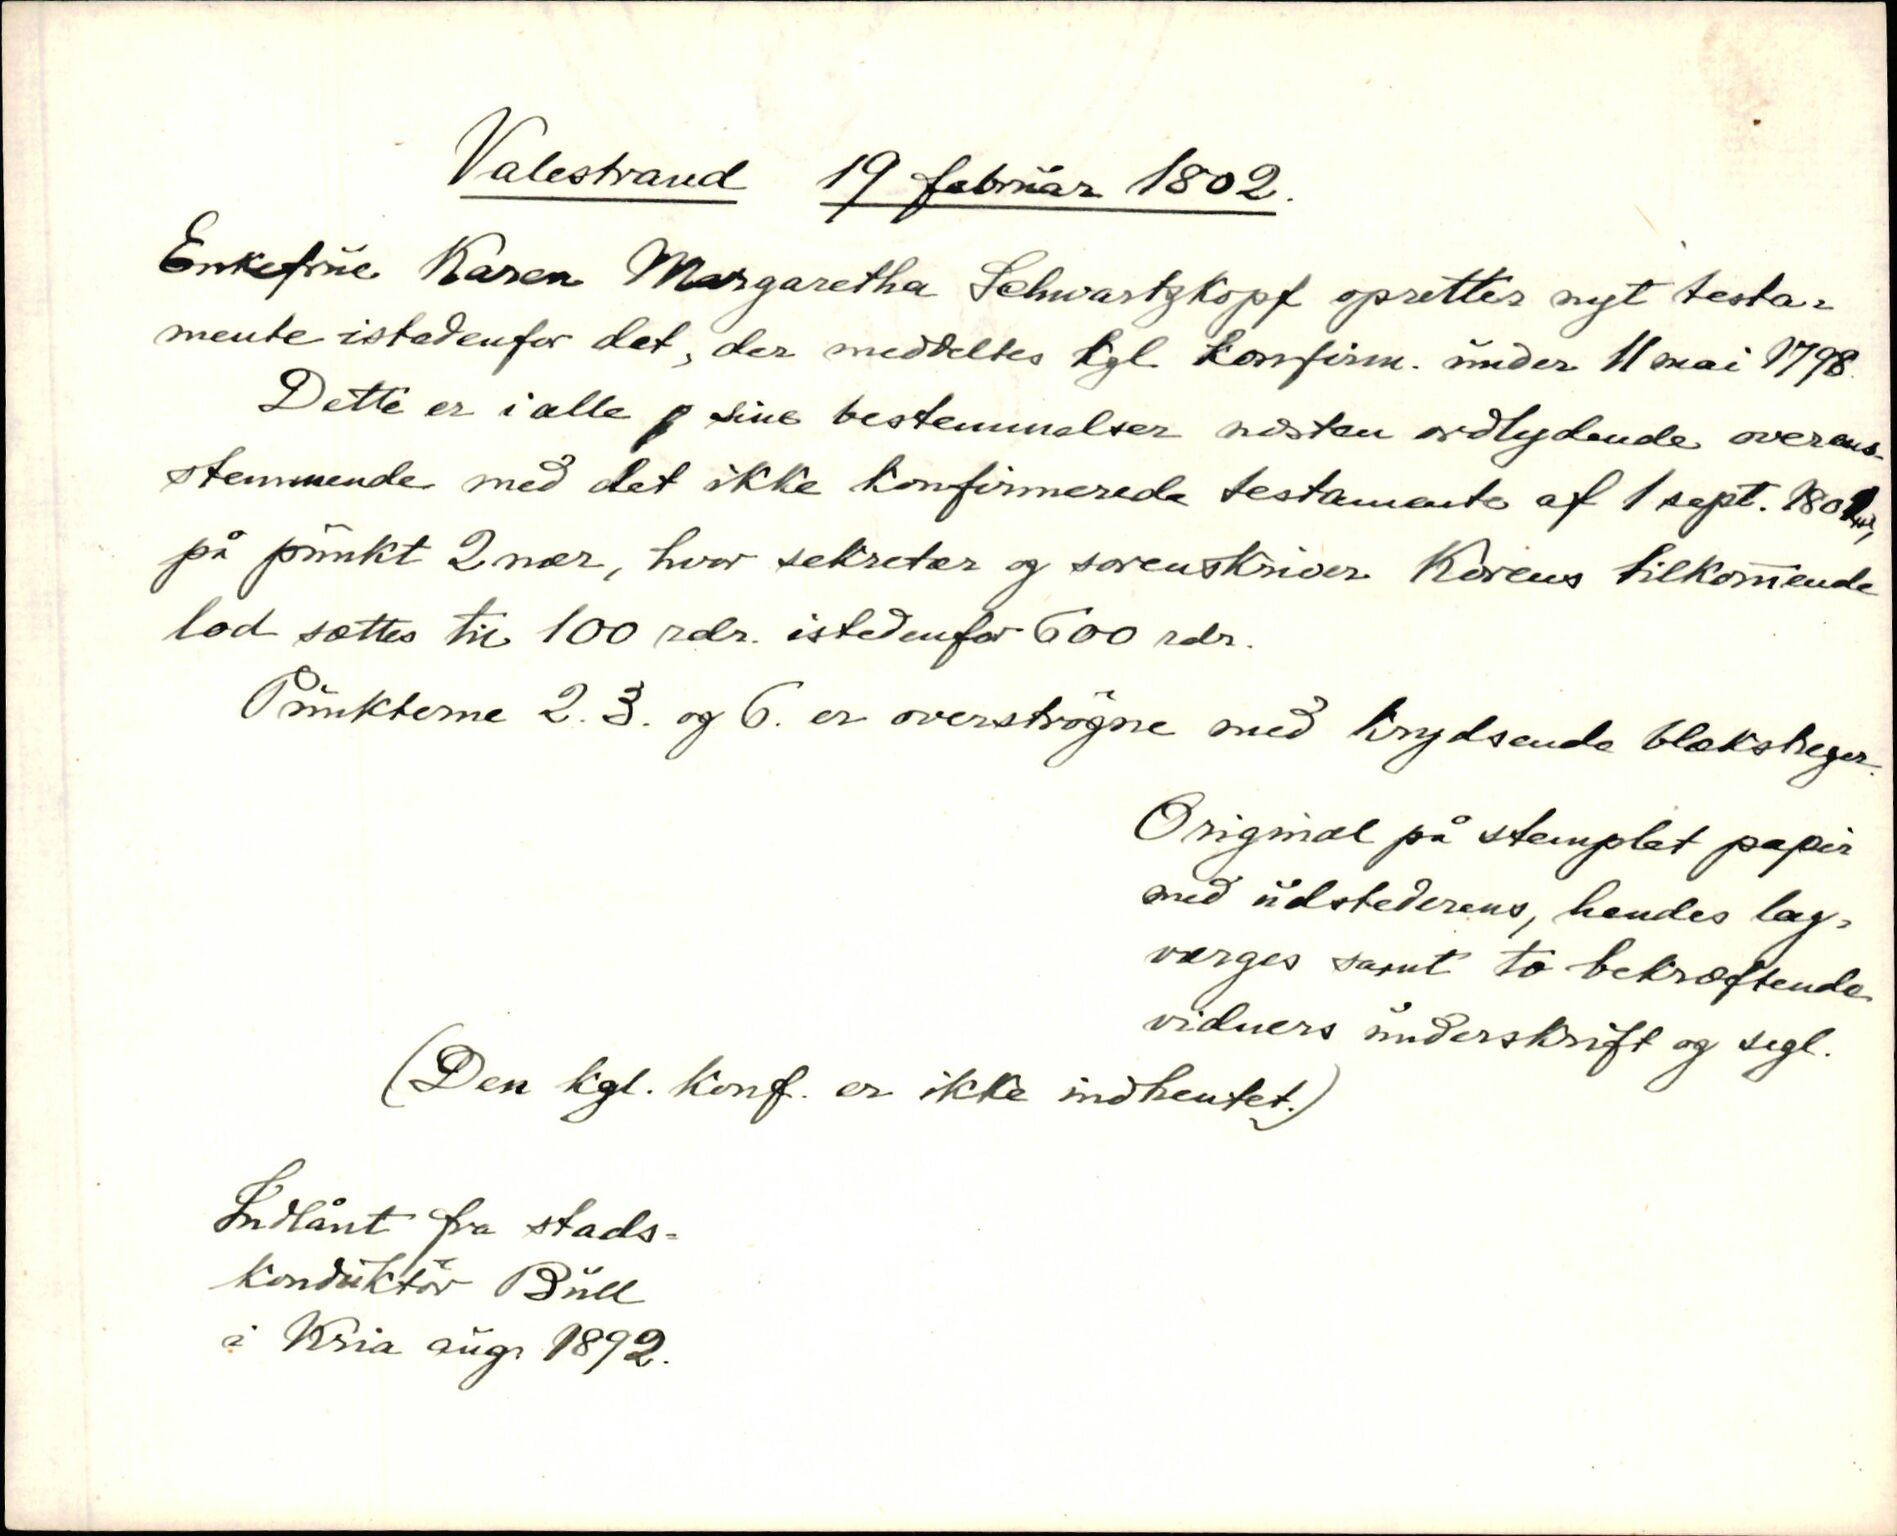 Valestrand 19 februar 1802.
Enkefrue Karen Margaretha Schwartzkopf opretter nyt testa-
mente istedenfor det, der meddeltes kgl konfirm. under 11 mai 1798.
Dette er i alle sine bestemmelser næsten ordlydende overens-
stemmende med det ikke konfirmerede testamente af 1 sept. 1801
på punkt 2 nær, hvor sekretær og sorenskriver Korens tilkom̄ende
lod sættes til 100 rdr. istedenfor 600 rdr.
Punkterne 2. 3. og 6. er overstrøgne med krydsende blækstreger.
Original på stemplet papir
med udstederens, hendes lag-
værges samt to bekræftende
vidners underskrift og segl.
(Den kgl. konf. er ikke indhentet.)
Indlånt fra stads-
konduktör Bull
i Kria aug. 1892.